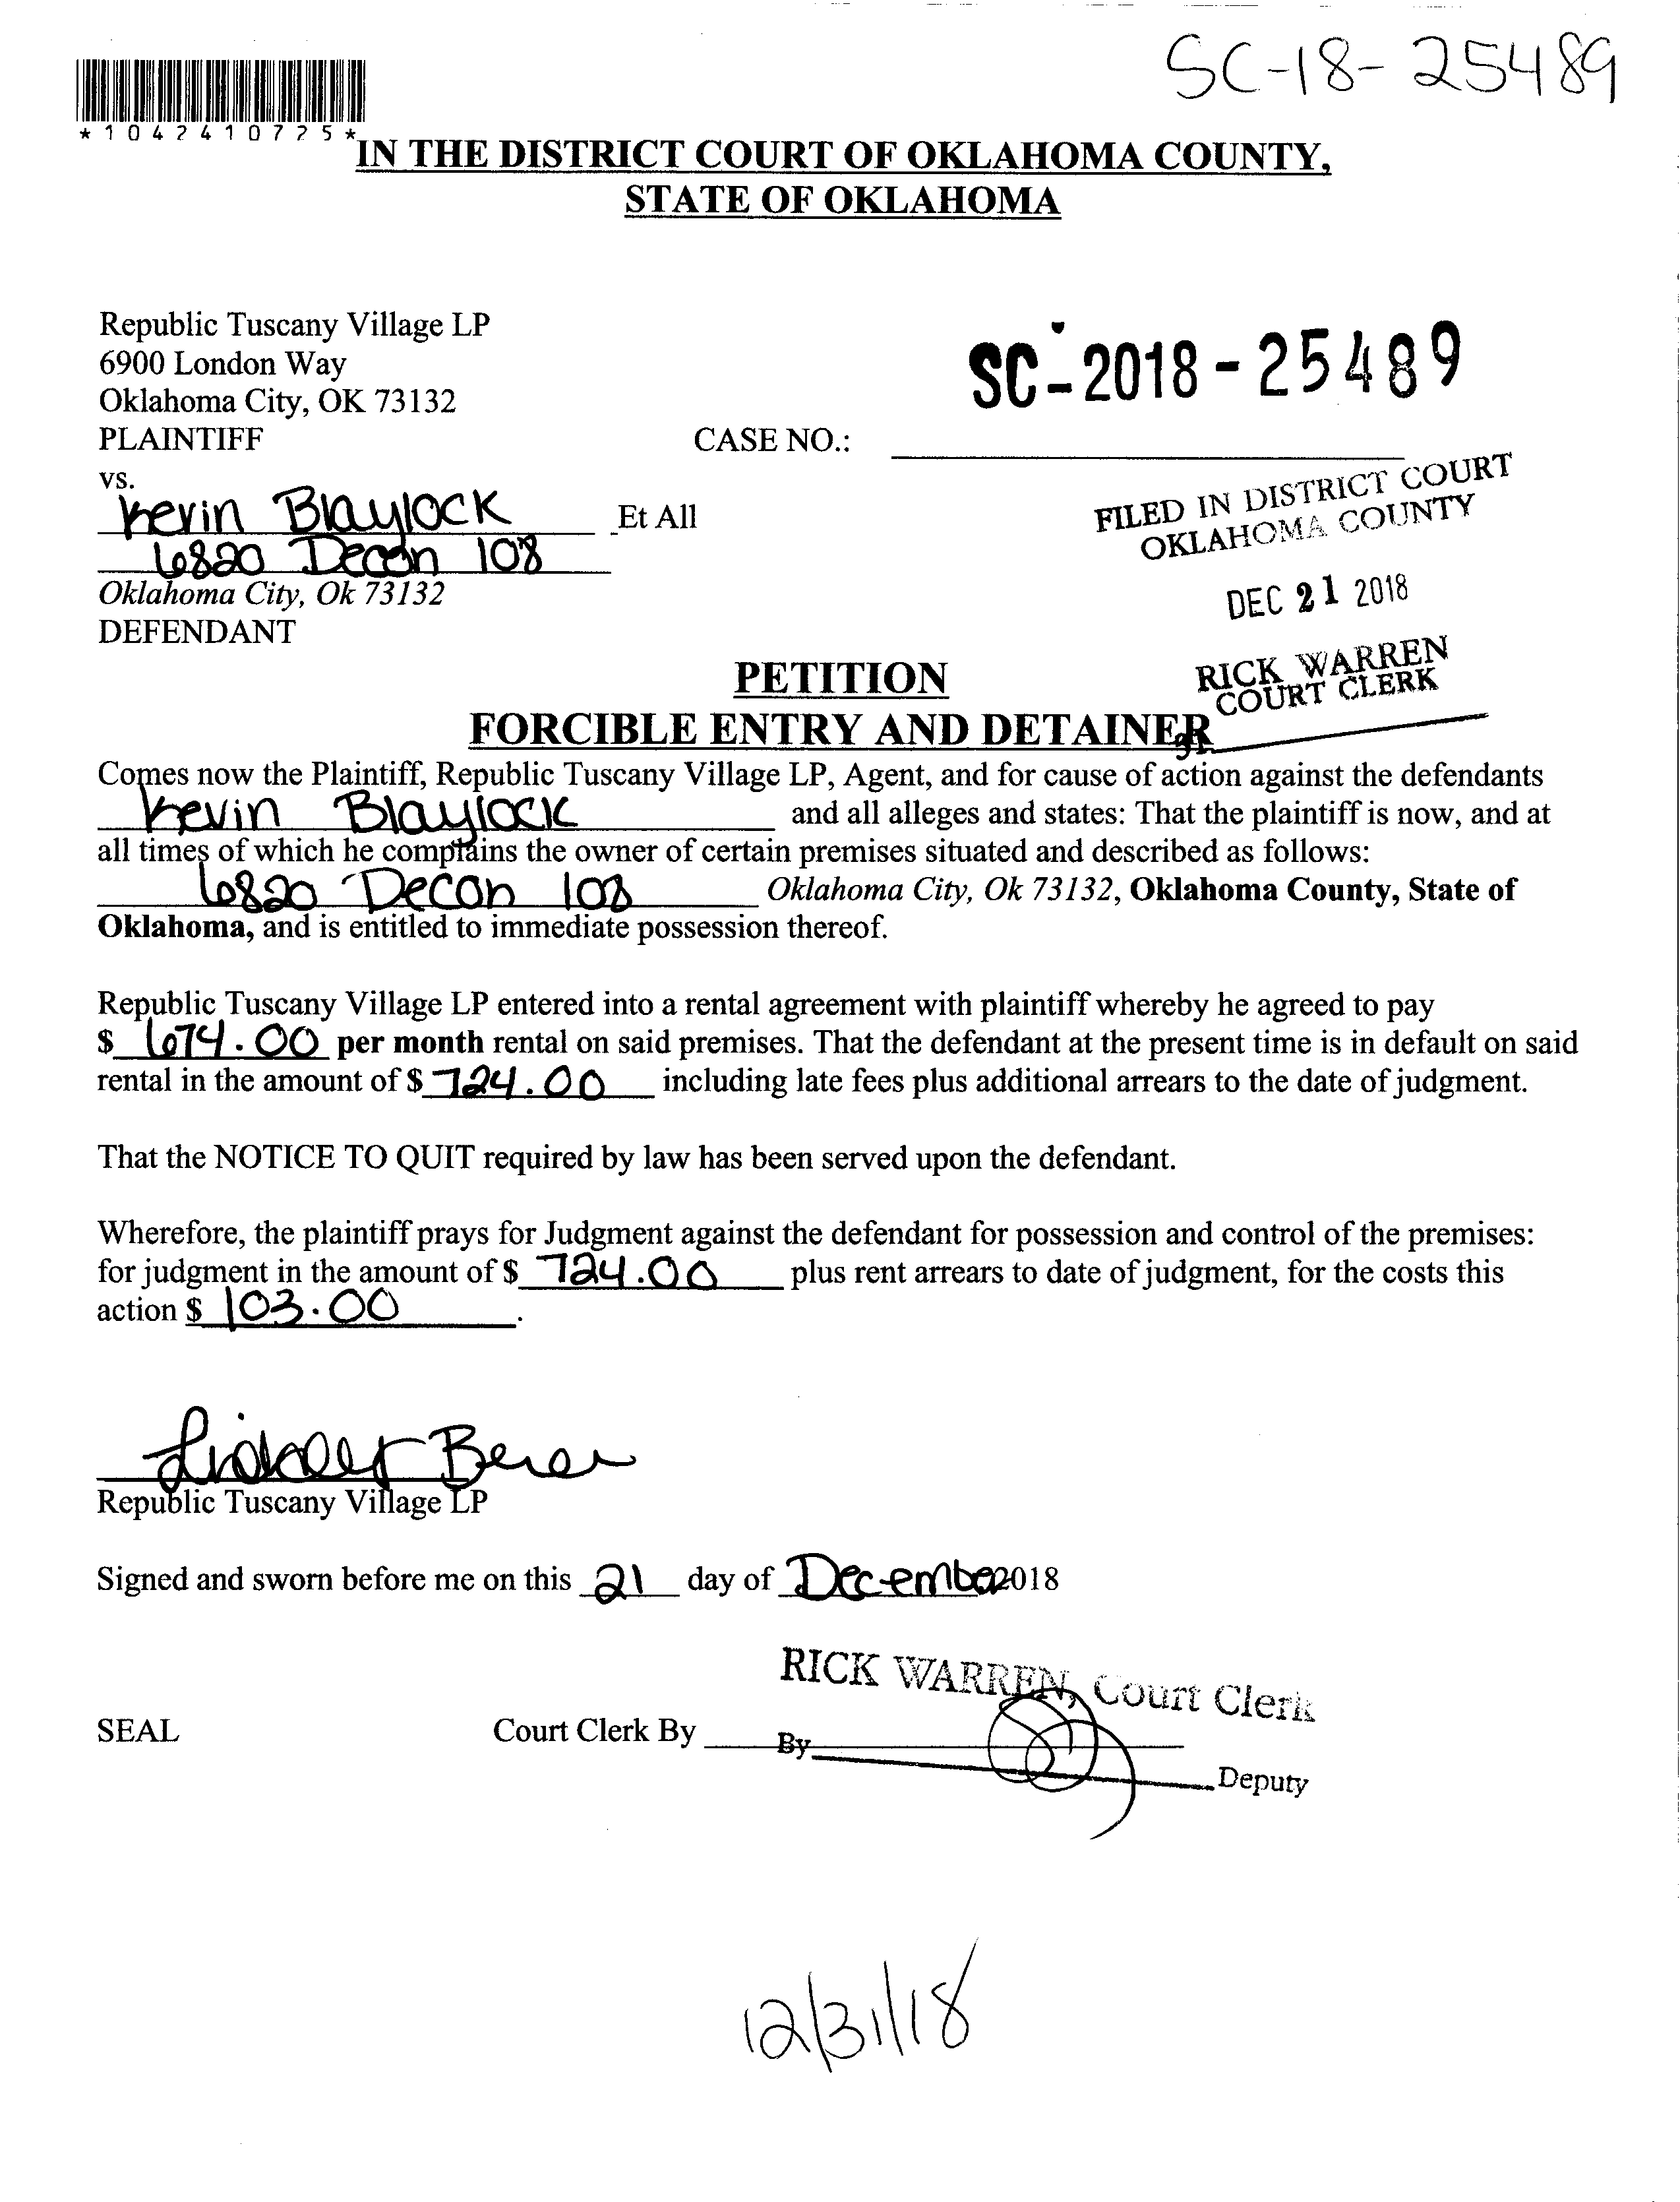 SC-18-25489
*1042410725*
IN THE DISTRICT COURT OF OKLAHOMA COUNTY,
STATE OF OKLAHOMA
Republic Tuscany Village LP
6900 London Way
Oklahoma City, OK 73132
PLAINTIFF
SC-2018-25489
CASE NO.:
vs.
Kevin Blaylock Et All
6820 Decan 108
Oklahoma City, Ok 73132
DEFENDANT
FILED IN DISTRICT COURT
OKLAHOMA COUNTY
DEC 21 2018
RICK WARREN
COURT CLERK
PETITION
FORCIBLE ENTRY AND DETAINER
Comes now the Plaintiff, Republic Tuscany Village LP, Agent, and for cause of action against the defendants
Kevin Blaylock and all alleges and states: That the plaintiff is now, and at
all times of which he complains the owner of certain premises situated and described as follows:
6820 Decan 108 Oklahoma City, Ok 73132, Oklahoma County, State of
Oklahoma, and is entitled to immediate possession thereof.
Republic Tuscany Village LP entered into a rental agreement with plaintiff whereby he agreed to pay
$ 674.00 per month rental on said premises. That the defendant at the present time is in default on said
rental in the amount of $ 724.00 including late fees plus additional arrears to the date of judgment.
That the NOTICE TO QUIT required by law has been served upon the defendant.
Wherefore, the plaintiff prays for Judgment against the defendant for possession and control of the premises:
for judgment in the amount of $ 724.00 plus rent arrears to date of judgment, for the costs this
action $ 103.00.
Republic Tuscany Village LP
Signed and sworn before me on this 21 day of December 2018
RICK WARREN, Court Clerk
SEAL Court Clerk By
By Deputy
12/31/18